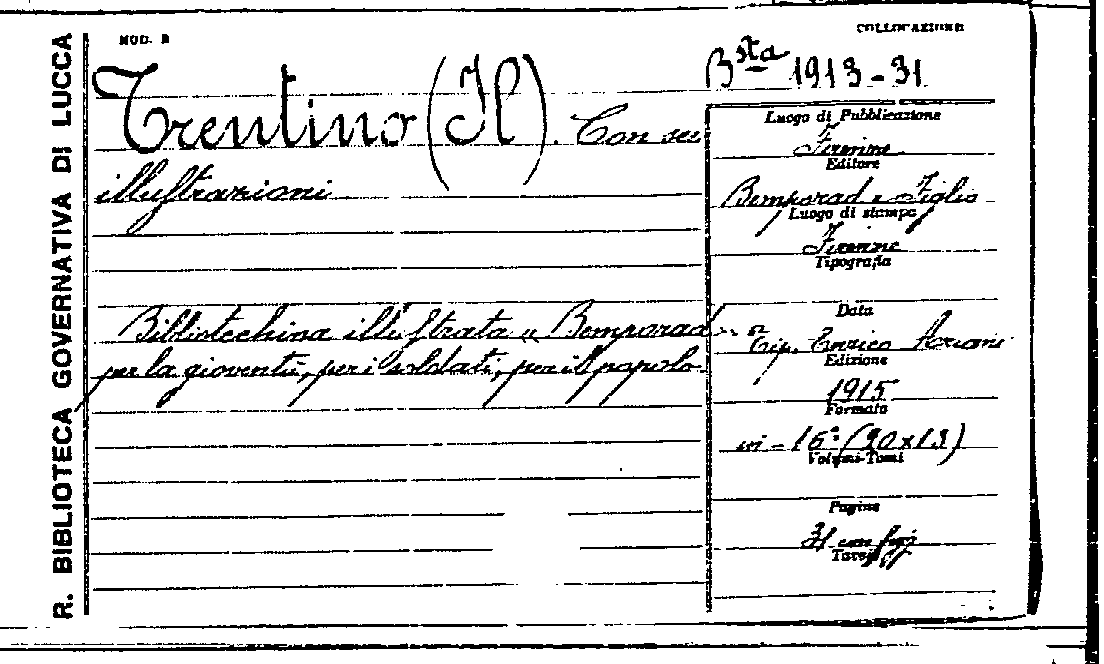 R. BIBLIOTECA GOVERNATIVA DI LUCCA
MOD. B
COLLOCAZIONE
Bsta 1913-31
Trentino (Il). Con sei
illustrazioni
Bibliotechina illustrata « Bemporad » n
per la gioventù, per i soldati, per il popolo.
Luogo di Pubblicazione
Firenze
Editore
Bemporad e Figlio
Luogo di stampa
Firenze
Tipografia
Tip. Enrico Ariani
Data
Edizione
1915
Formato
in-16° (20x13)
Volumi-Tomi
Pagine
31 con figg
Tavole